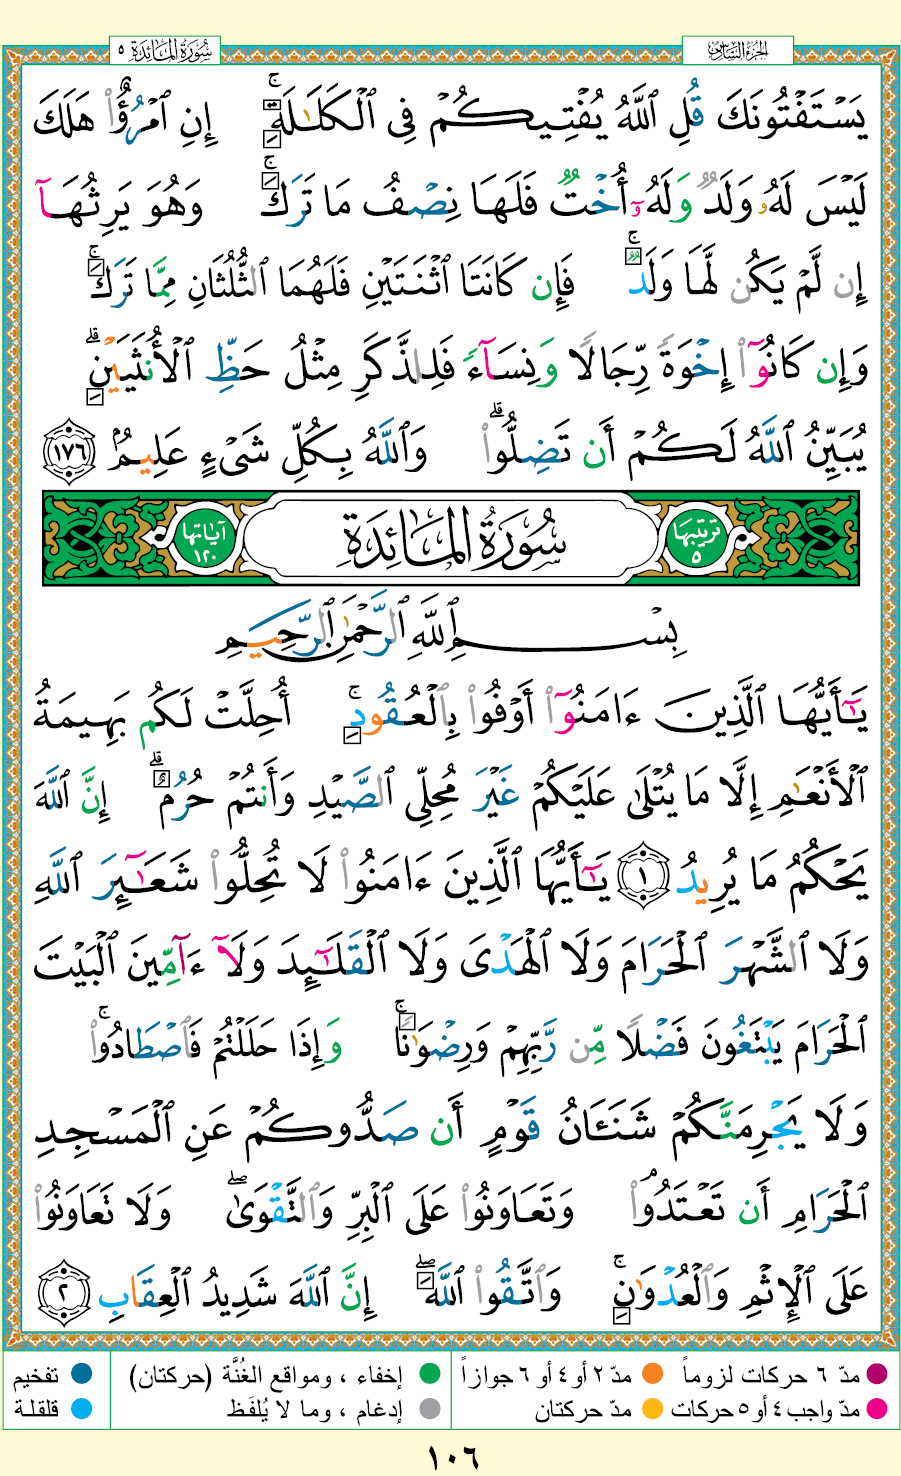 سُورَةُ المَائدَة ٥
الجزء السادس
يَسْتَفْتُونَكَ قُلِ ٱللَّهُ يُفْتِيكُمْ فِى ٱلْكَلَـٰلَةِ ۚ إِنِ ٱمْرُؤٌا۟ هَلَكَ
لَيْسَ لَهُۥ وَلَدٌ وَلَهُۥٓ أُخْتٌ فَلَهَا نِصْفُ مَا تَرَكَ ۚ وَهُوَ يَرِثُهَآ
إِن لَّمْ يَكُن لَّهَا وَلَدٌ ۚ فَإِن كَانَتَا ٱثْنَتَيْنِ فَلَهُمَا ٱلثُّلُثَانِ مِمَّا تَرَكَ ۚ
وَإِن كَانُوٓا۟ إِخْوَةً رِّجَالًا وَنِسَآءً فَلِلذَّكَرِ مِثْلُ حَظِّ ٱلْأُنثَيَيْنِ ۗ
يُبَيِّنُ ٱللَّهُ لَكُمْ أَن تَضِلُّوا۟ ۗ وَٱللَّهُ بِكُلِّ شَىْءٍ عَلِيمٌۢ ١٧٦
ترتيبها ٥ سُورَةُ المَائدَةِ آياتها ١٢٠
بِسْمِ ٱللَّهِ ٱلرَّحْمَـٰنِ ٱلرَّحِيمِ
يَـٰٓأَيُّهَا ٱلَّذِينَ ءَامَنُوٓا۟ أَوْفُوا۟ بِٱلْعُقُودِ ۚ أُحِلَّتْ لَكُم بَهِيمَةُ
ٱلْأَنْعَـٰمِ إِلَّا مَا يُتْلَىٰ عَلَيْكُمْ غَيْرَ مُحِلِّى ٱلصَّيْدِ وَأَنتُمْ حُرُمٌ ۗ إِنَّ ٱللَّهَ
يَحْكُمُ مَا يُرِيدُ ١ يَـٰٓأَيُّهَا ٱلَّذِينَ ءَامَنُوا۟ لَا تُحِلُّوا۟ شَعَـٰٓئِرَ ٱللَّهِ
وَلَا ٱلشَّهْرَ ٱلْحَرَامَ وَلَا ٱلْهَدْىَ وَلَا ٱلْقَلَـٰٓئِدَ وَلَآ ءَآمِّينَ ٱلْبَيْتَ
ٱلْحَرَامَ يَبْتَغُونَ فَضْلًا مِّن رَّبِّهِمْ وَرِضْوَٰنًا ۚ وَإِذَا حَلَلْتُمْ فَٱصْطَادُوا۟ ۚ
وَلَا يَجْرِمَنَّكُمْ شَنَـَٔانُ قَوْمٍ أَن صَدُّوكُمْ عَنِ ٱلْمَسْجِدِ
ٱلْحَرَامِ أَن تَعْتَدُوا۟ ۘ وَتَعَاوَنُوا۟ عَلَى ٱلْبِرِّ وَٱلتَّقْوَىٰ ۖ وَلَا تَعَاوَنُوا۟
عَلَى ٱلْإِثْمِ وَٱلْعُدْوَٰنِ ۚ وَٱتَّقُوا۟ ٱللَّهَ ۖ إِنَّ ٱللَّهَ شَدِيدُ ٱلْعِقَابِ ٢
مدّ ٦ حركات لزوماً مدّ ٢ أو ٤ أو ٦ جوازاً إخفاء ، ومواقع الغُنَّة (حركتان) تفخيم
مدّ واجب ٤ أو ٥ حركات مدّ حركتان إدغام ، وما لا يُلفَظ قلقلة
١٠٦